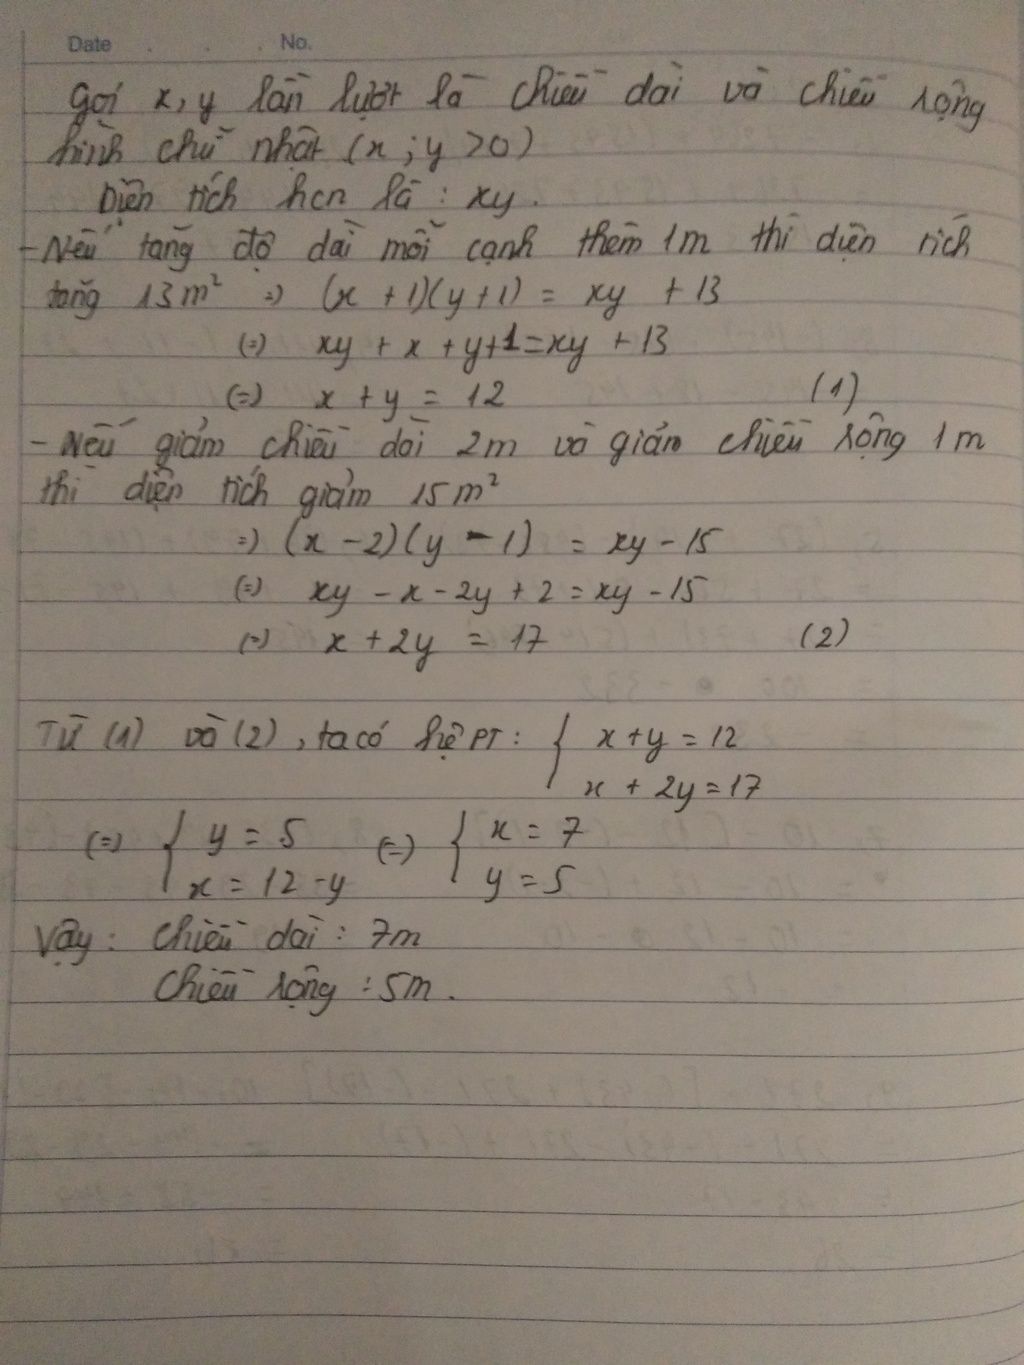 Date . . . No.
Gọi x, y lần lượt là chiều dài và chiều rộng
hình chữ nhật (x ; y > 0)
Diện tích hcn là : xy.
- Nếu tăng độ dài mỗi cạnh thêm 1m thì diện tích
tăng 13m² => (x + 1)(y + 1) = xy + 13
(=) xy + x + y + 1 = xy + 13
(=) x + y = 12 (1)
- Nếu giảm chiều dài 2m và giảm chiều rộng 1m
thì diện tích giảm 15m²
=) (x - 2)(y - 1) = xy - 15
(=) xy - x - 2y + 2 = xy - 15
(=) x + 2y = 17 (2)
Từ (1) và (2), ta có hệ PT : { x + y = 12
x + 2y = 17
(=) { y = 5 (=) { x = 7
x = 12 - y y = 5
Vậy : chiều dài : 7m
chiều rộng : 5m.